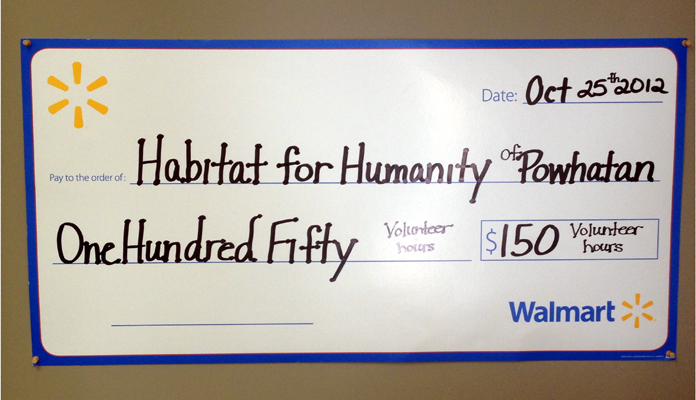 Date: Oct 25th 2012
Pay to the order of: Habitat for Humanity of Powhatan
One Hundred Fifty Volunteer hours $150 Volunteer hours
Walmart